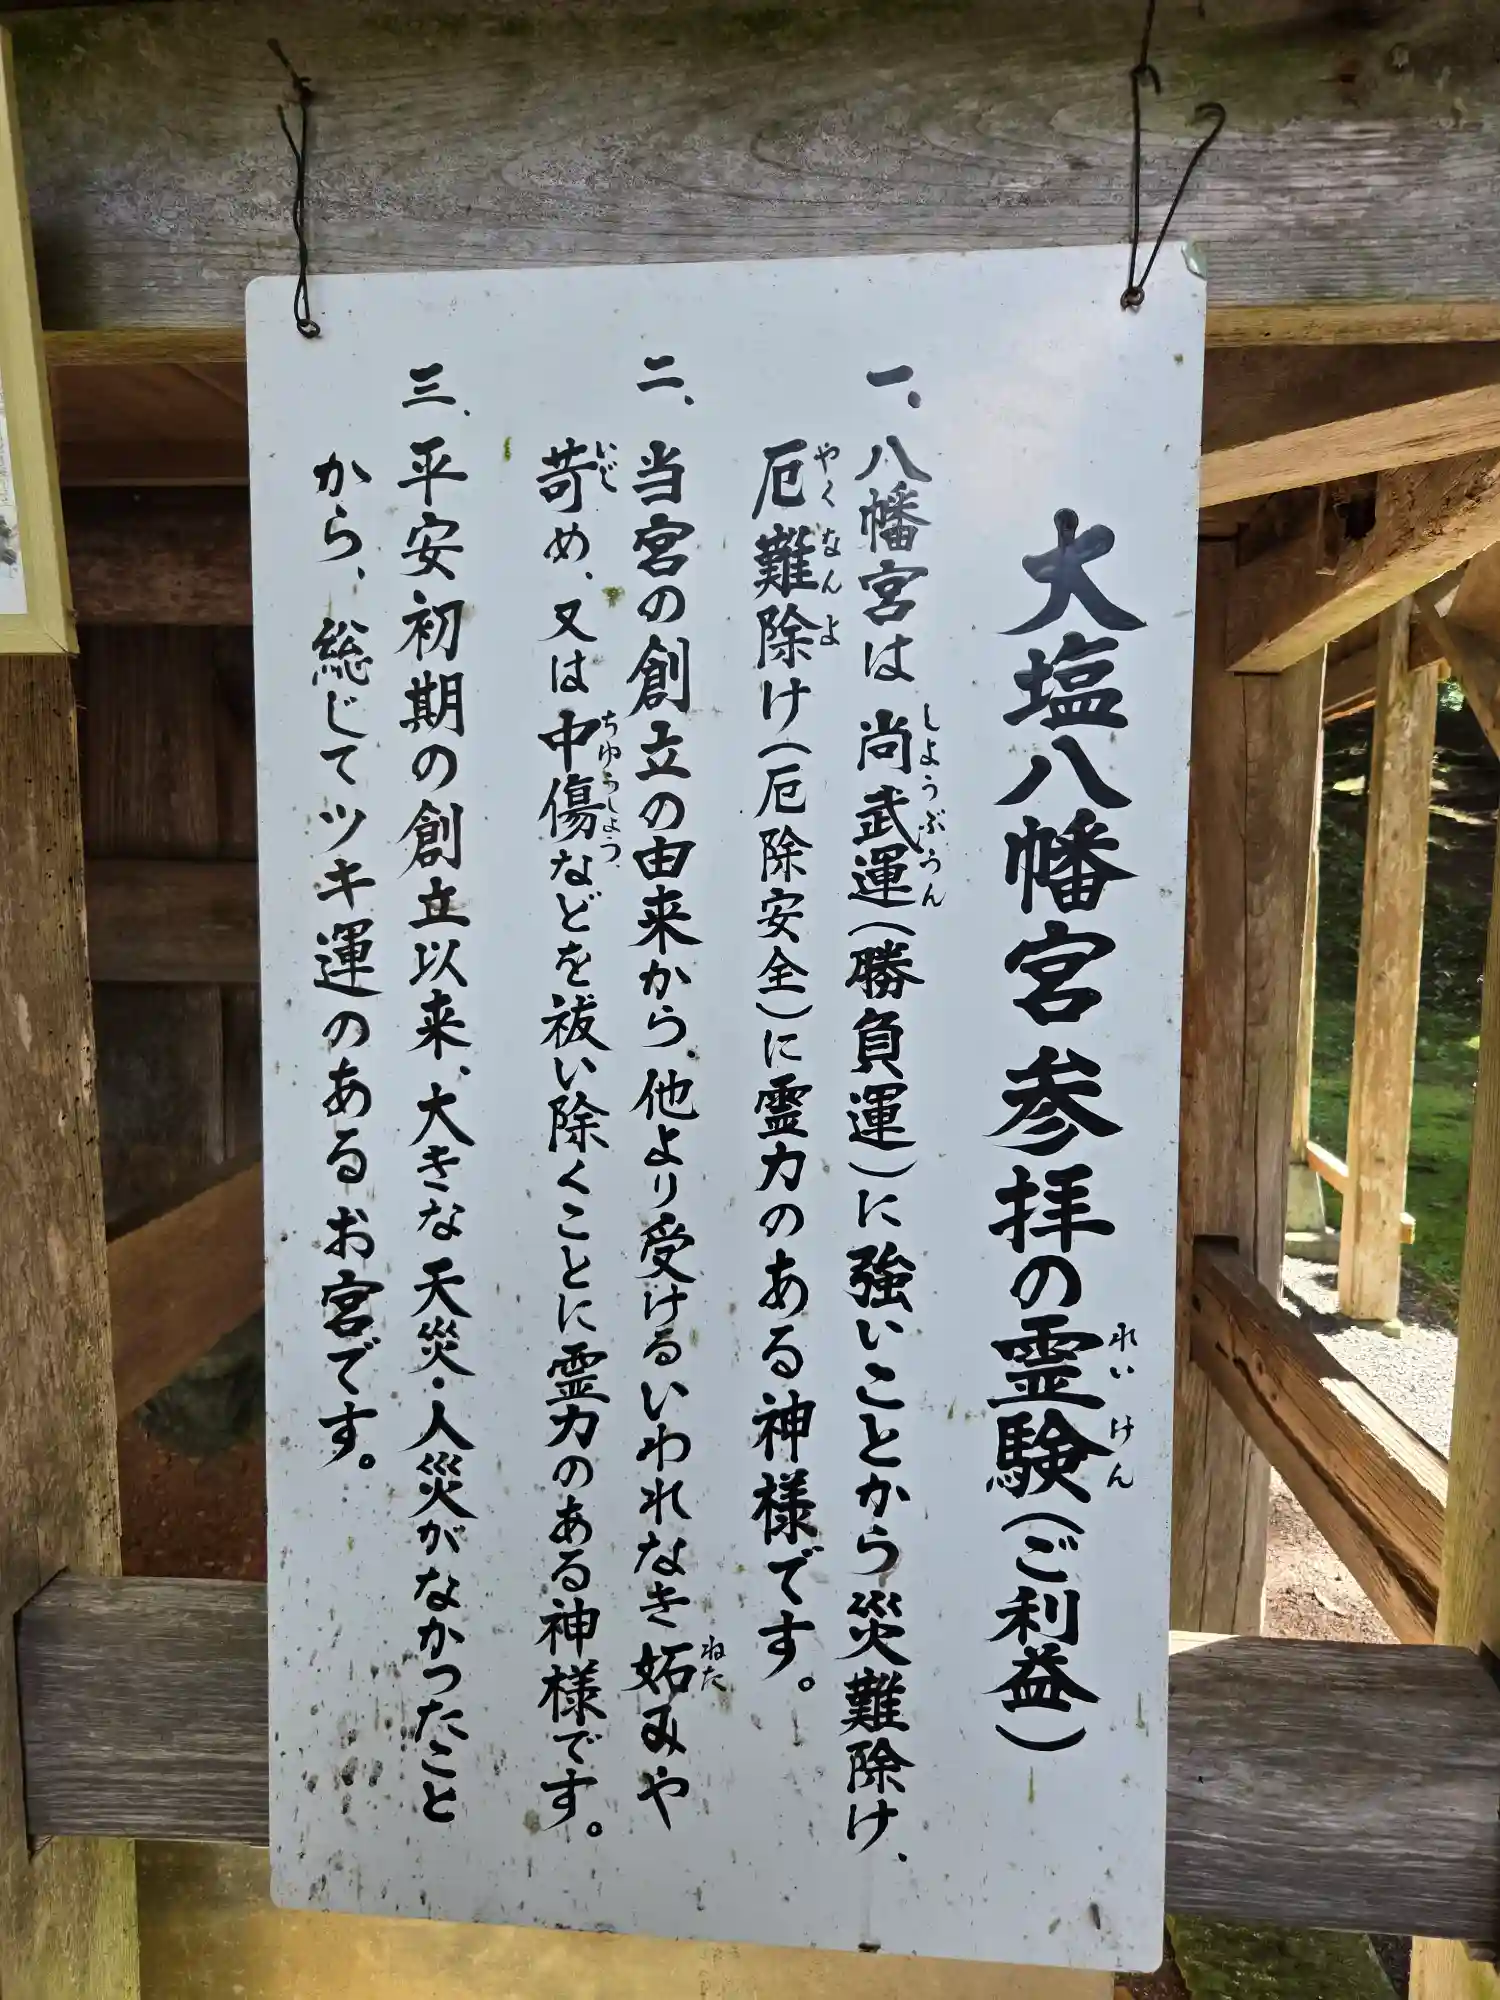 大塩八幡宮参拝の霊験(ご利益)
れいけん
一、八幡宮は尚武運(勝負運)に強いことから災難除け、
しょうぶうん
厄難除け(厄除安全)に霊力のある神様です。
やくなんよ
二、当宮の創立の由来から、他より受けるいわれなき妬みや
ねた
苛め、又は中傷などを祓い除くことに霊力のある神様です。
いじ
ちゅうしょう
三、平安初期の創立以来、大きな天災・人災がなかったこと
から、総じてツキ運のあるお宮です。